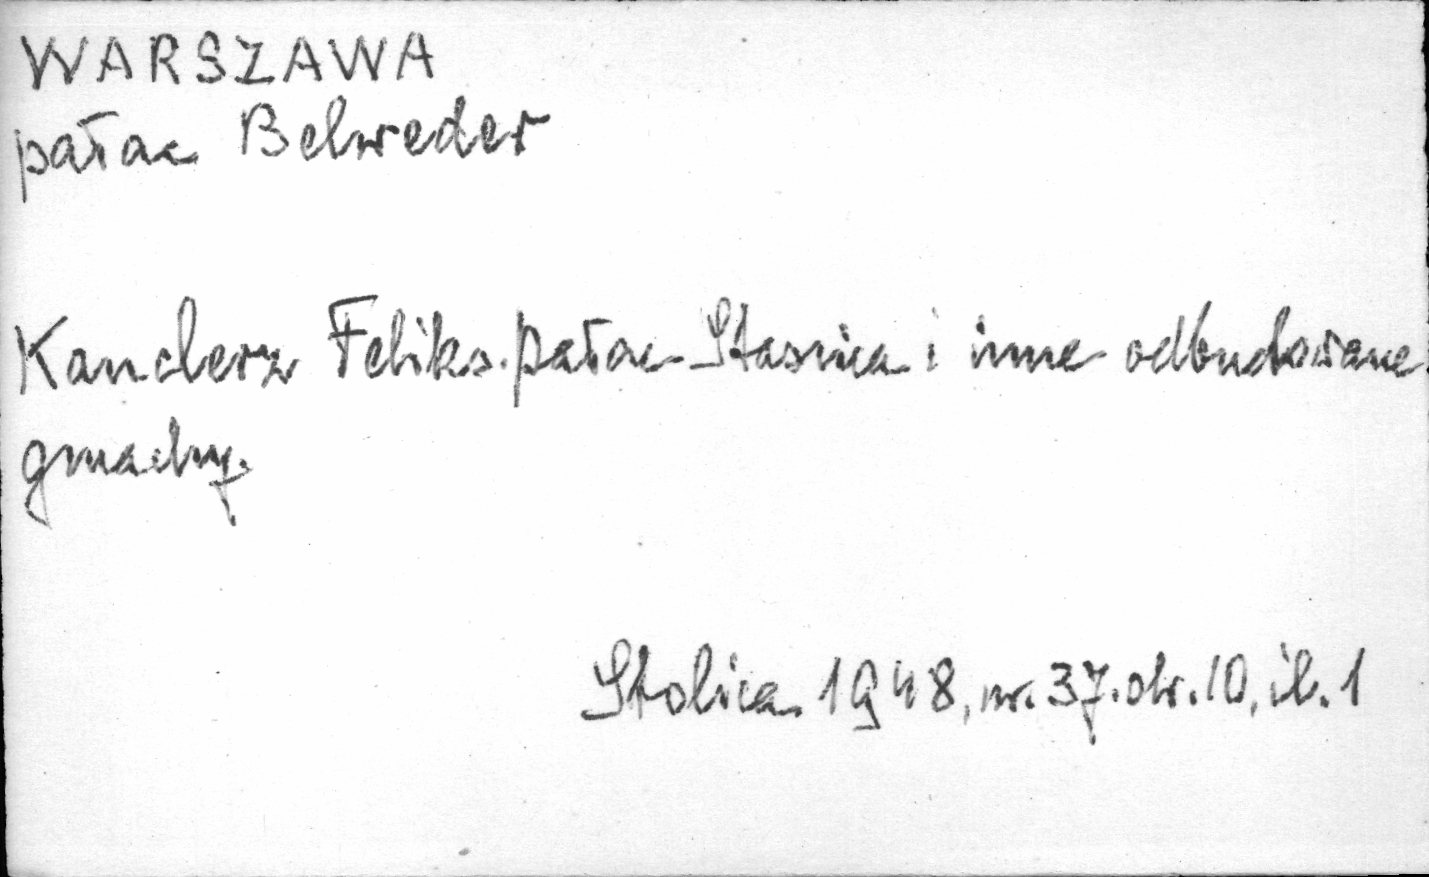 WARSZAWA
pałac Belweder
Kanclerz Feliks. pałac Staszica i inne odbudowane
gmachy.
Stolica. 1948, nr. 37. str. 10, il. 1